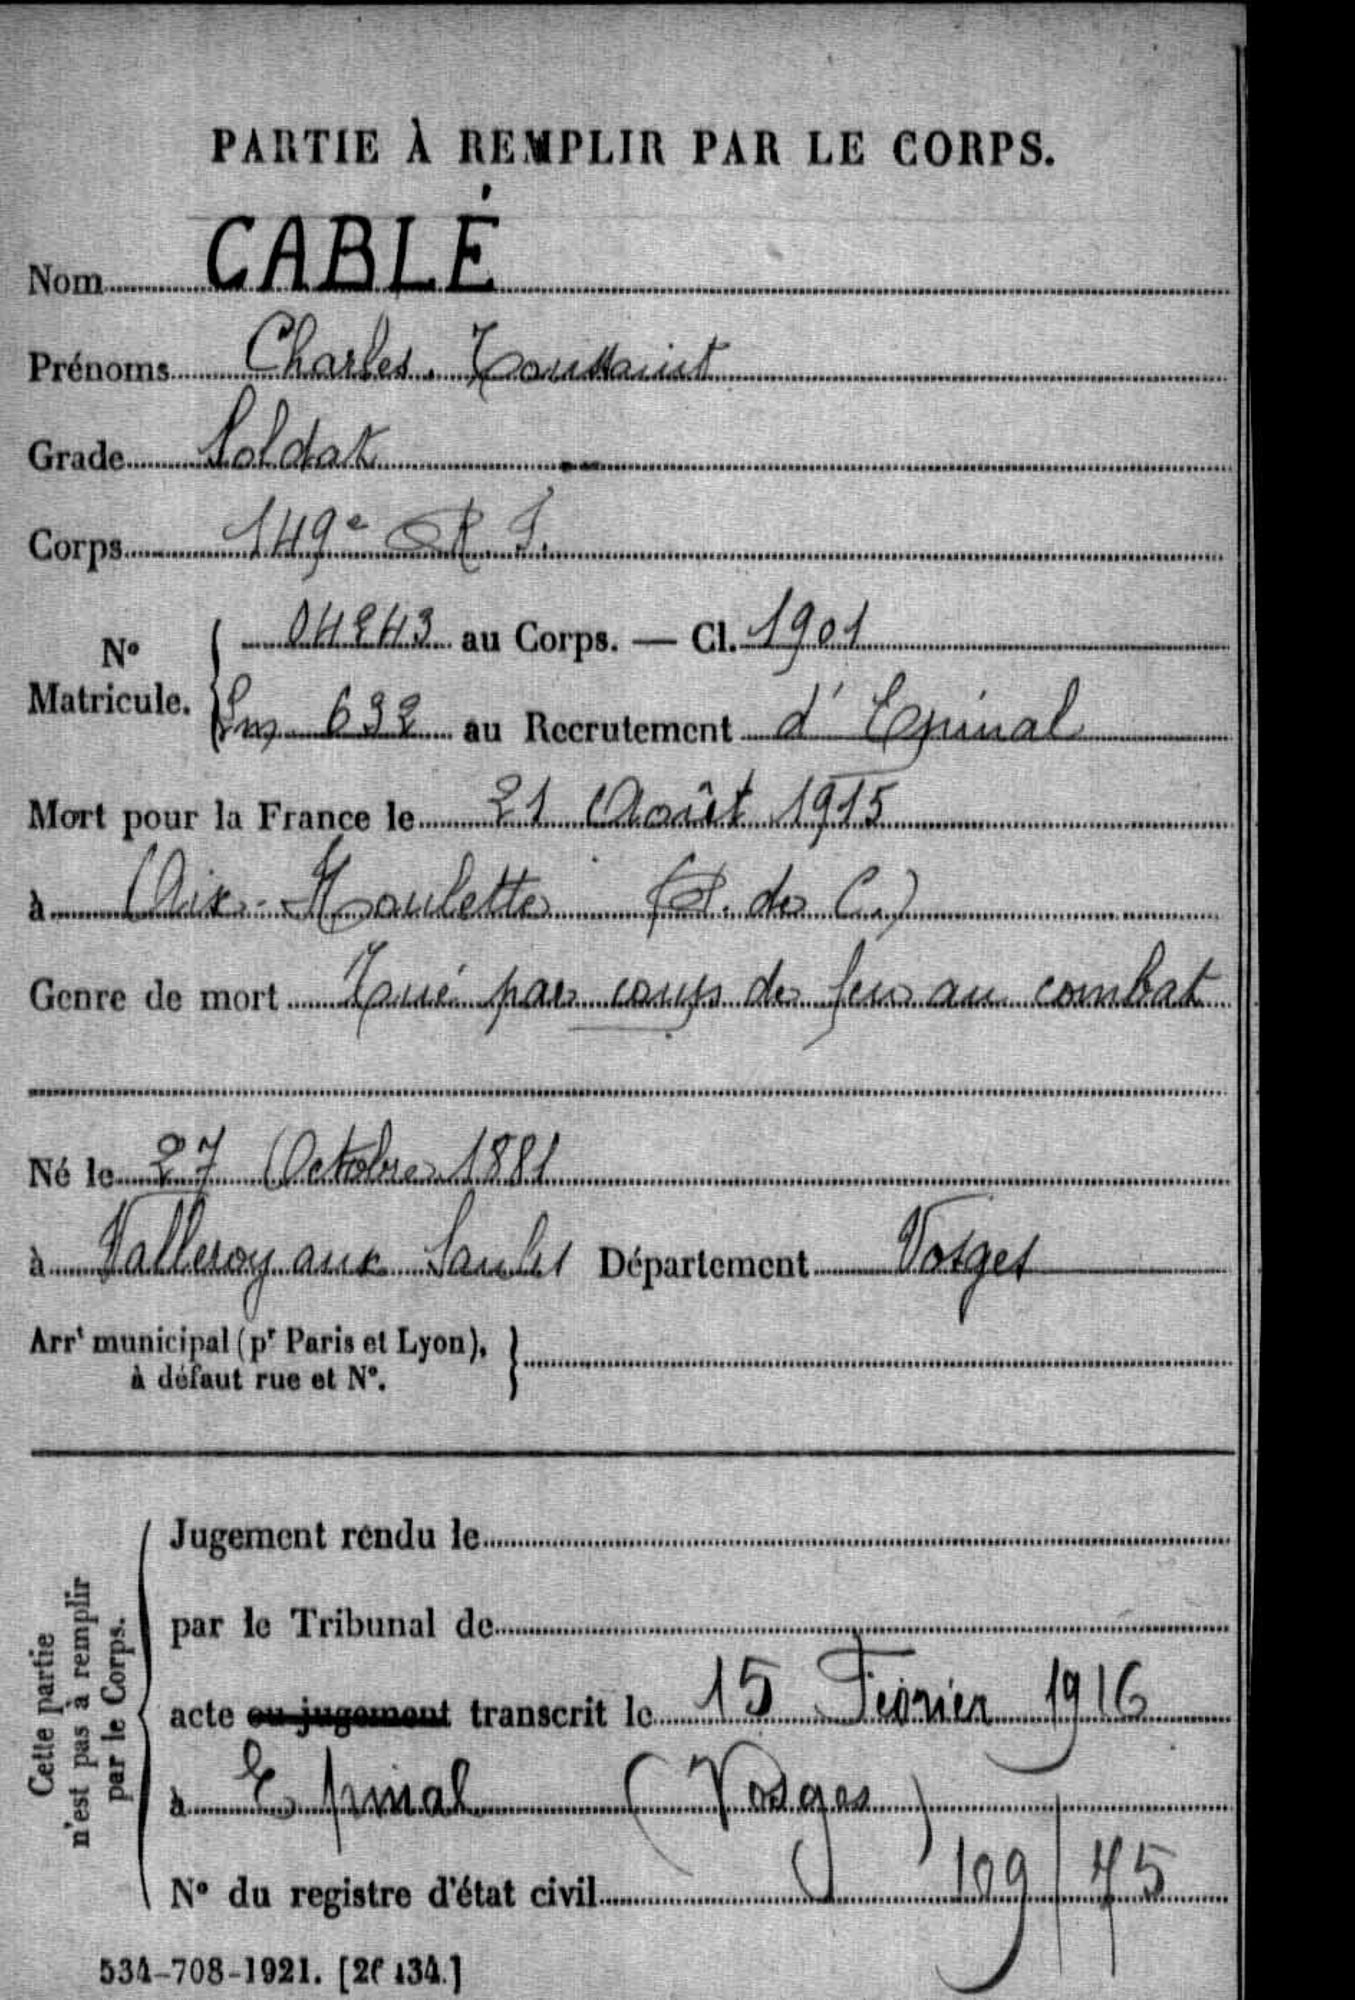 PARTIE À REMPLIR PAR LE CORPS.
Nom CABLÉ
Prénoms Charles. Toussaint
Grade Soldat
Corps 149e R. I.
No Matricule. { 04243 au Corps. — Cl. 1901
Lm 632 au Recrutement d'Epinal
Mort pour la France le 21 Août 1915
à Aix-Noulette (P. de C.)
Genre de mort Tué par coups de feu au combat
Né le 27 Octobre 1881
à Valleroy aux Saules Département Vosges
Arrt municipal (pr Paris et Lyon), à défaut rue et No. }
Cette partie n'est pas à remplir par le Corps. {
Jugement rendu le
par le Tribunal de
acte ou jugement transcrit le 15 Février 1916
à Epinal (Vosges)
No du registre d'état civil 109/45
534-708-1921. [26434.]